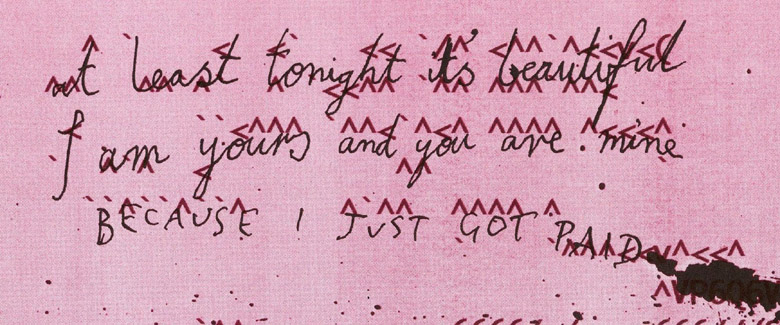 at least tonight it's beautiful
I am yours and you are . mine
BECAUSE I JUST GOT PAID